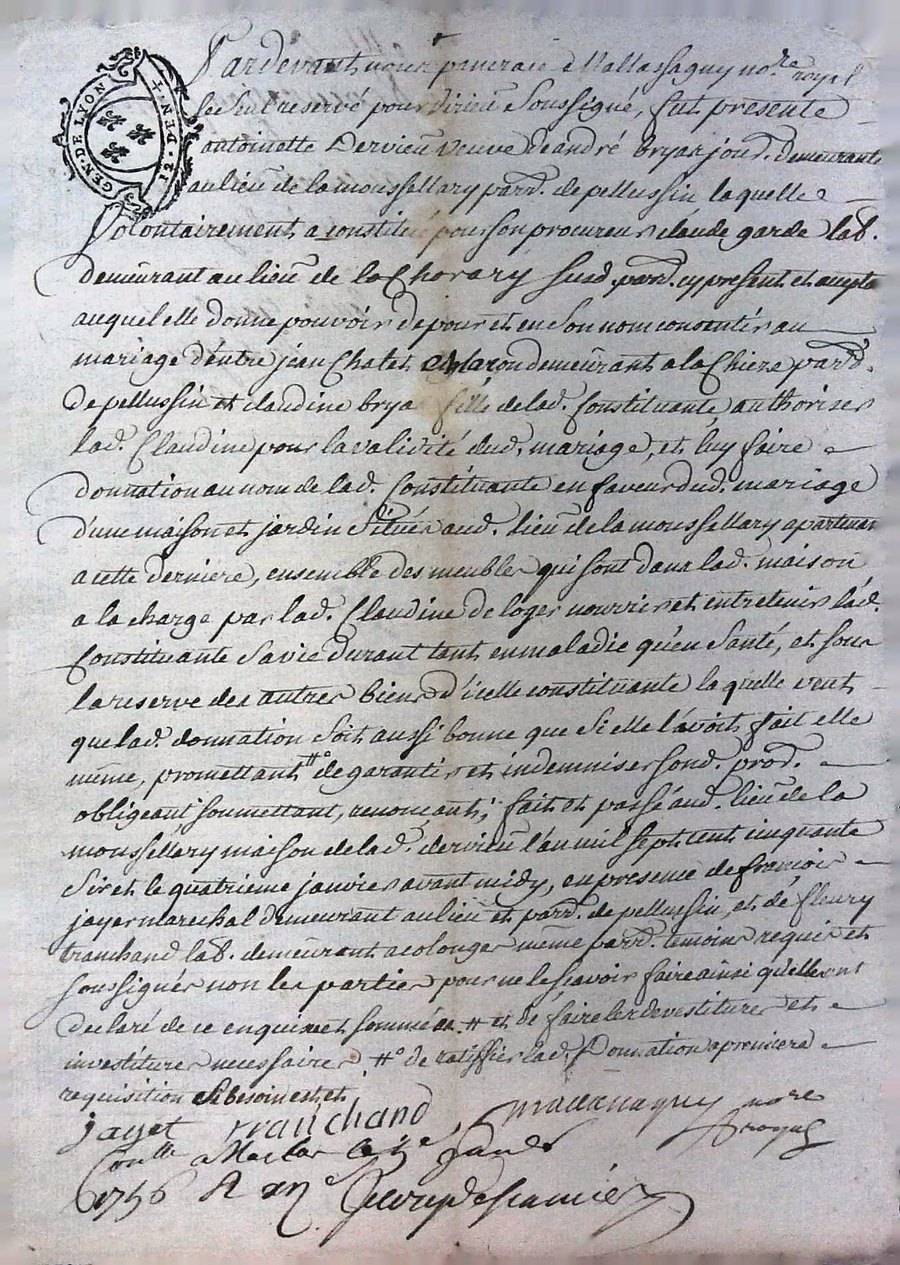 GEN. DE LYON
Pardevant nous
le seul reservé pour Virieu soussigné, fut presente
antoinette Dervieu veuve de andré bryas jourd. demeurante
au lieu de la moussellary parr. de pellussin laquelle
Volontairement a constitué pour son procureur claude garde lab.
demeurant au lieu de la Chorary susd. parr. cy present et accepta
auquel elle donne pouvoir de pour et en son nom consentir au
mariage d'entre jean Chalet demeurant a la Chieze parr.
de pellussin et claudine brya fille de lad. Constituante authoriser
lad. Claudine pour la validité dud. mariage, et luy faire
donnation au nom de lad. Constituante en faveur dud. mariage
d'une maison et jardin situés aud. lieu de la moussellary apartenan
a cette derniere, ensemble des meubles qui sont dans lad. maison
a la charge par lad. Claudine de loger nourrir et entretenir lad.
Constituante sa vie durant tant en maladie qu'en santé, et sous
la reserve des autres biens d'icelle constituante laquelle veut
que lad. donnation soit aussi bonne que si elle l'avoit fait elle
même, promettant # de garantir et indemniser sond. proc.
obligeant soumettant, renoncant; fait et passé aud. lieu de la
moussellary maison de lad. dervieu l'an mil sept cent cinquante
six et le quatrieme janvier avant midy, en presence de francois
jayet marechal demeurant au lieu et parr. de pellussin, et de fleury
tranchand lab. demeurant a colonges même parr. temoins requis et
soussignés non les parties pour ne le scavoir faire ainsi qu'elles ont
declaré de ce enquises et sommées # et de faire les devestitures et
investitures necessaires. # de ratiffier lad. Donnation a premiere
requisition si besoin est
jayet tranchand mallassaguy nore
royal
Conlle a Maclas le janv
1756